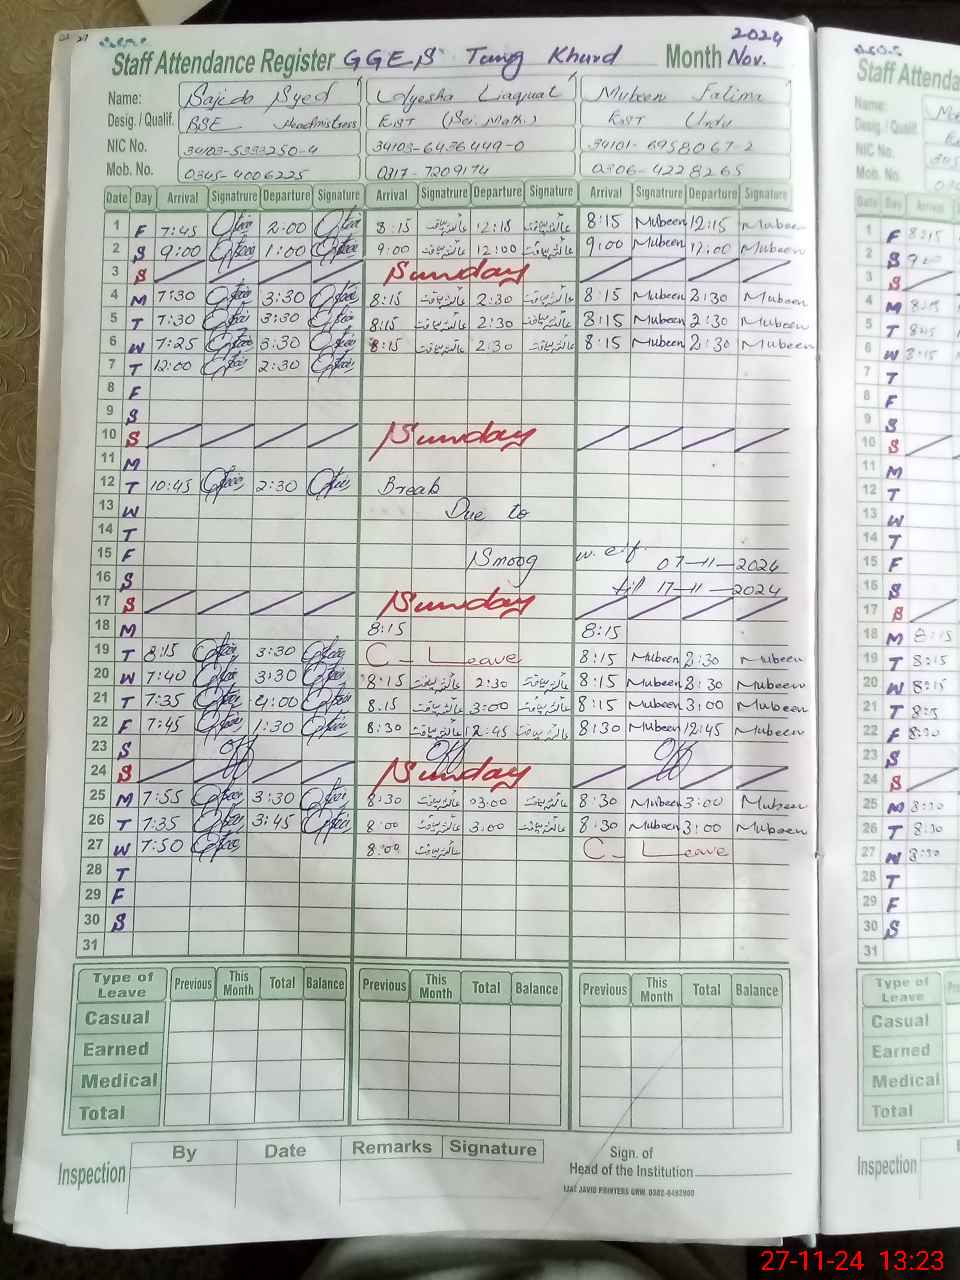 2024
Staff Attendance Register GGES Tung Khurd Month Nov.
Name: Sajida Syed Ayesha Liaquat Mubeen Fatima
Desig. / Qualif. BSE Headmistress EST (Sci. Math.) EST Urdu
NIC No. 34103-6436449-0 34101-6958067-2
Mob. No. 0345-4006225 0317-7209174 0306-4228265
Date Day Arrival Signature Departure Signature Arrival Signature Departure Signature Arrival Signature Departure Signature
1 F 7:45 2:00 8:15 12:15 8:15 Mubeen 12:15 Mubeen
2 S 9:00 1:00 9:00 12:00 9:00 Mubeen 12:00 Mubeen
3 S Sunday
4 M 7:30 3:30 8:15 2:30 8:15 Mubeen 2:30 Mubeen
5 T 7:30 3:30 8:15 2:30 8:15 Mubeen 2:30 Mubeen
6 W 7:25 3:30 8:15 2:30 8:15 Mubeen 2:30 Mubeen
7 T 12:00 2:30
8 F
9 S
10 S Sunday
11 M
12 T 10:45 2:30 Break
13 W Due to
14 T
15 F Smog w.e.f. 07-11-2024
16 S till 17-11-2024
17 S Sunday
18 M 8:15 8:15
19 T 8:15 3:30 C- Leave 8:15 Mubeen 2:30 Mubeen
20 W 7:40 3:30 8:15 2:30 8:15 Mubeen 2:30 Mubeen
21 T 7:35 4:00 8:15 3:00 8:15 Mubeen 3:00 Mubeen
22 F 7:45 1:30 8:30 12:45 8:30 Mubeen 12:45 Mubeen
23 S Off Off Off
24 S Sunday
25 M 7:55 3:30 8:30 03:00 8:30 Mubeen 3:00 Mubeen
26 T 7:35 3:45 8:00 3:00 8:30 Mubeen 3:00 Mubeen
27 W 7:50 8:00 C- Leave
28 T
29 F
30 S
31
Type of Leave Previous This Month Total Balance Previous This Month Total Balance Previous This Month Total Balance
Casual
Earned
Medical
Total
Inspection By Date Remarks Signature
Sign. of
Head of the Institution
IJAZ JAVID PRINTERS GRW.
Staff Attenda
Name:
Desig. / Qualif.
NIC No.
Mob. No.
Date Day Arrival
1 F 8:15
2 S 9:00
3 S
4 M 8:15
5 T 8:15
6 W 8:15
7 T
8 F
9 S
10 S
11 M
12 T
13 W
14 T
15 F
16 S
17 S
18 M 8:15
19 T 8:15
20 W 8:15
21 T 8:15
22 F 8:30
23 S
24 S
25 M 8:30
26 T 8:30
27 W 8:30
28 T
29 F
30 S
31
Type of Leave
Casual
Earned
Medical
Total
Inspection
27-11-24 13:23